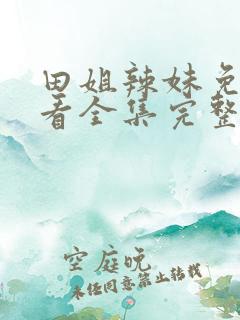 田姐辣妹免
看全集完整
空庭晚
未经同意禁止转载